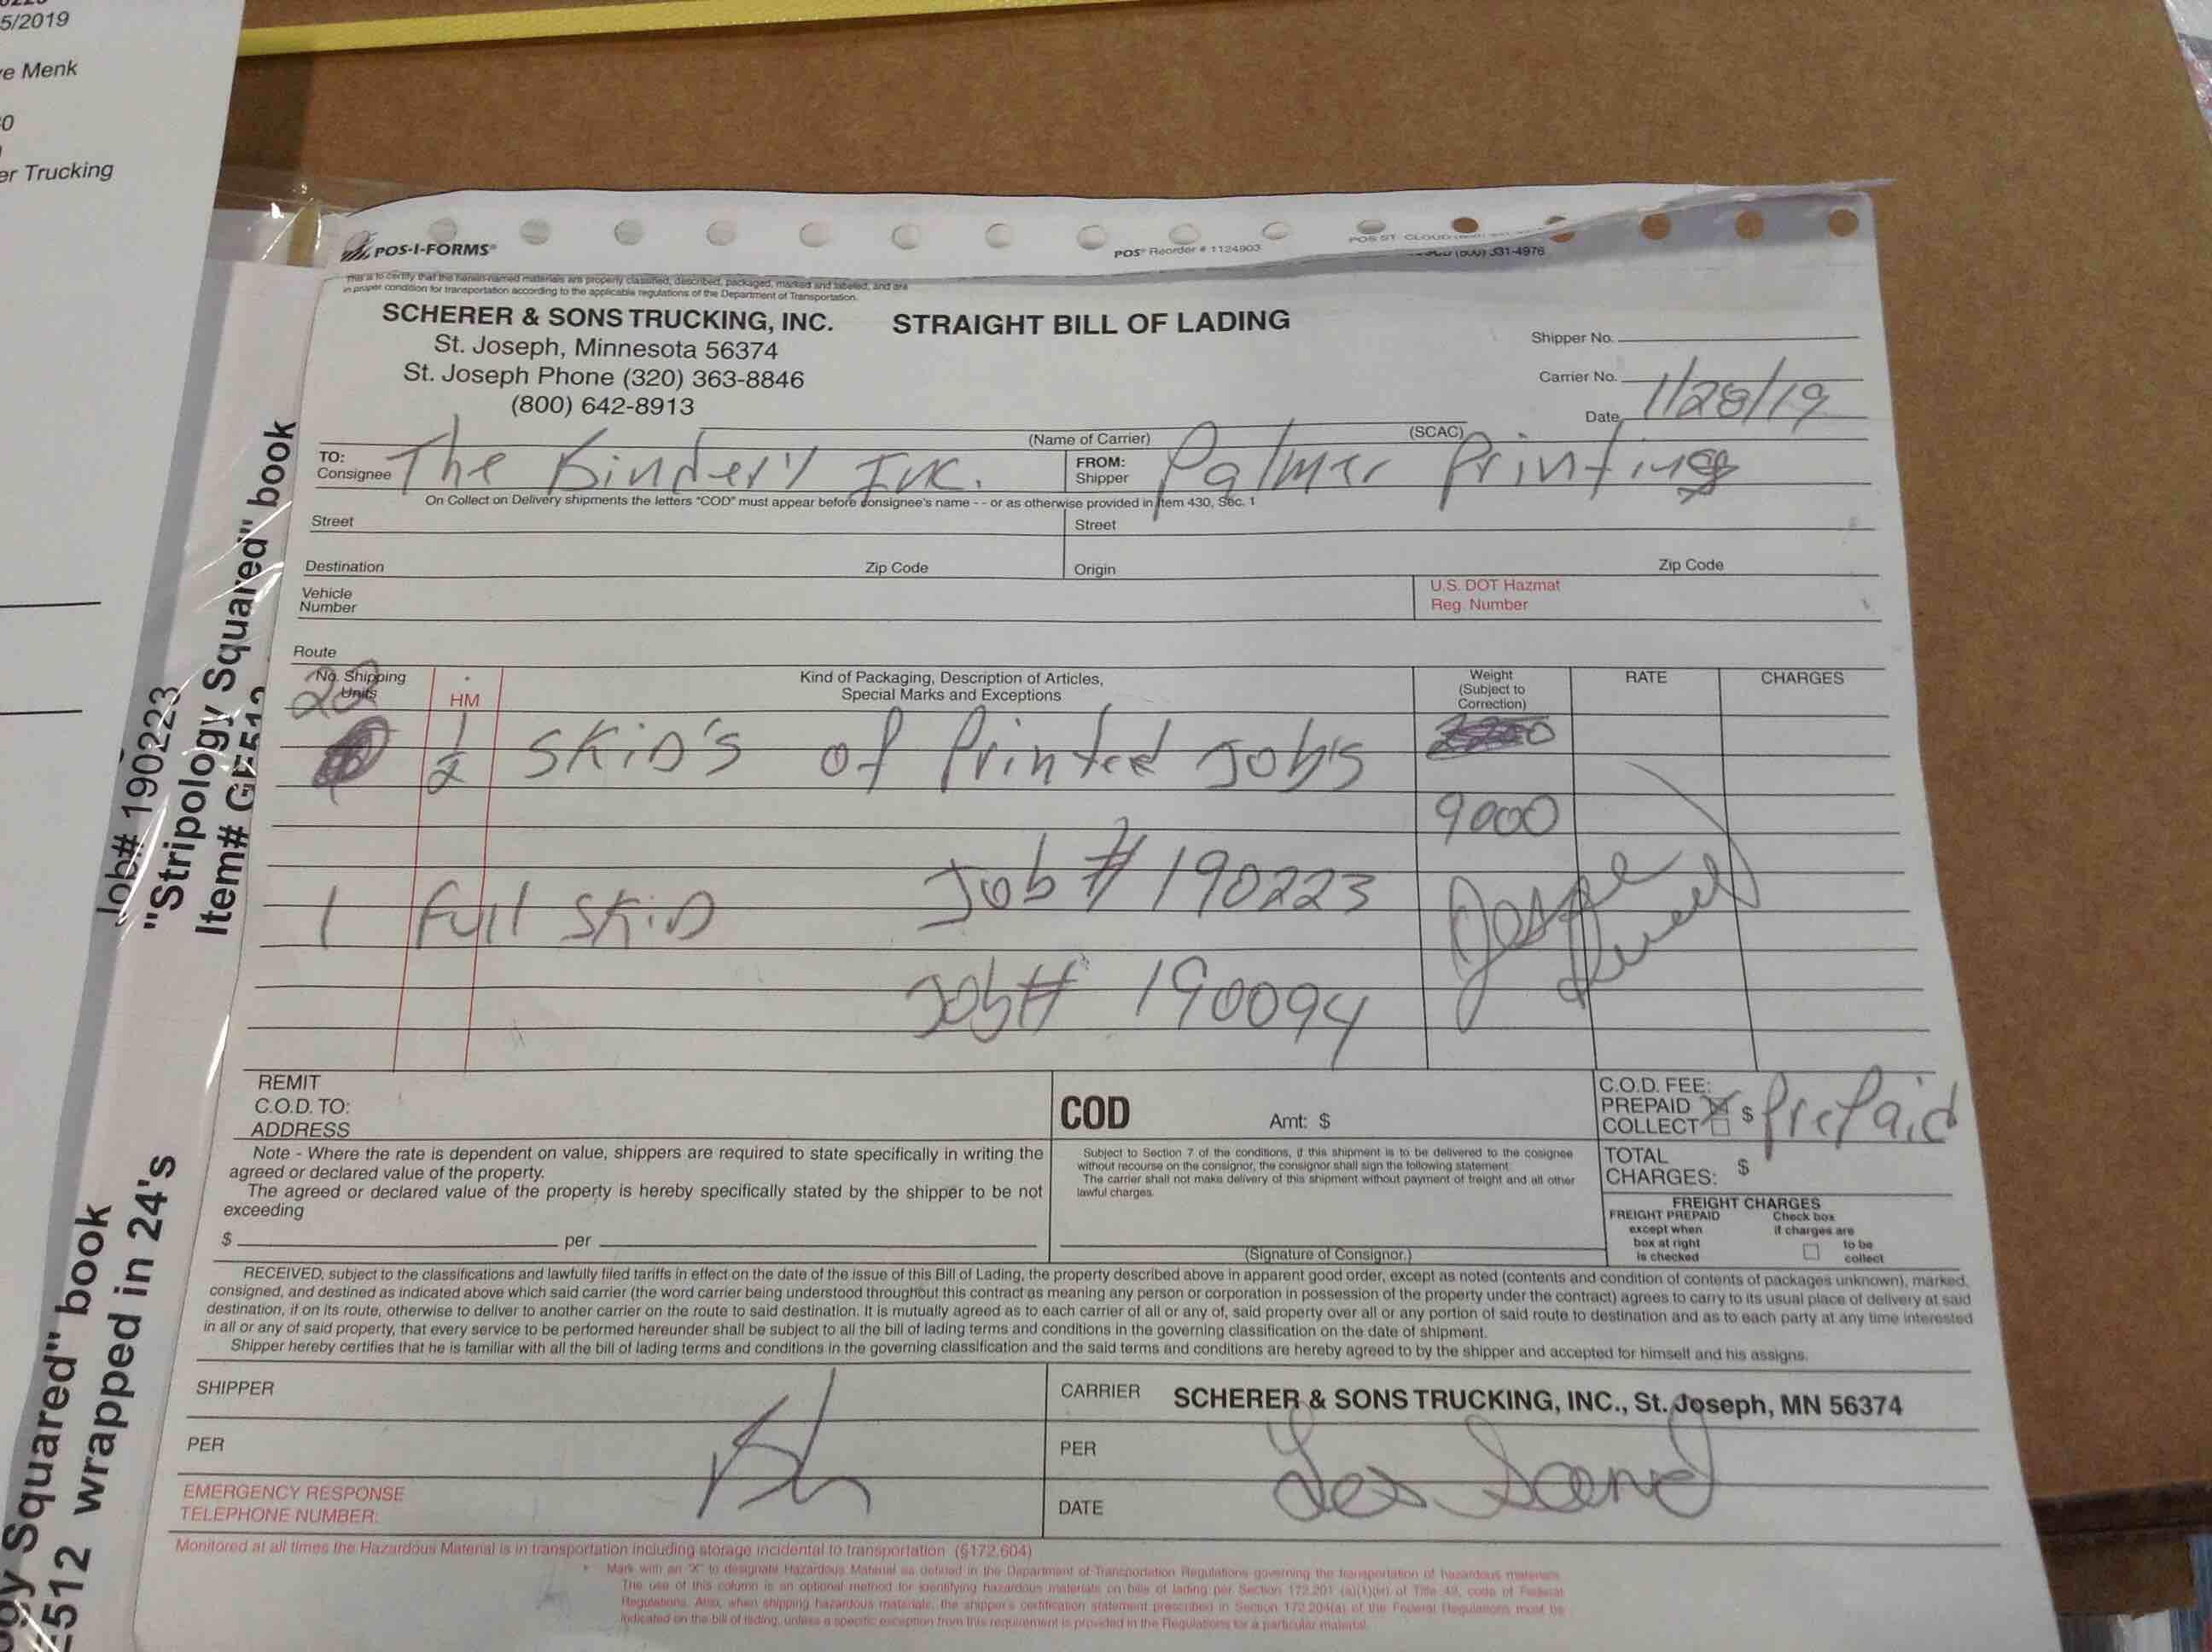 5/2019
e Menk
er Trucking
POS-I-FORMS®
POS® Reorder # 1124903
POS ST. CLOUD
(800) 331-4976
This is to certify that the herein-named materials are properly classified, described, packaged, marked and labeled, and are
in proper condition for transportation according to the applicable regulations of the Department of Transportation.
SCHERER & SONS TRUCKING, INC.
STRAIGHT BILL OF LADING
St. Joseph, Minnesota 56374
St. Joseph Phone (320) 363-8846
(800) 642-8913
Shipper No.
Carrier No.
Date 1/28/19
(Name of Carrier)
(SCAC)
TO:
Consignee The Bindery Inc.
FROM:
Shipper Palmer Printing
On Collect on Delivery shipments the letters "COD" must appear before consignee's name - - or as otherwise provided in Item 430, Sec. 1
Street
Street
Destination Zip Code
Origin Zip Code
Vehicle
Number
U.S. DOT Hazmat
Reg. Number
Route
No. Shipping
Units
HM
Kind of Packaging, Description of Articles,
Special Marks and Exceptions
Weight
(Subject to
Correction)
RATE
CHARGES
22
1/2 SKiD's of Printed Jobs
9000
Job # 190223
1 Full SKiD
Job# 190094
REMIT
C.O.D. TO:
ADDRESS
COD Amt: $
C.O.D. FEE:
PREPAID
COLLECT
$ PrePaid
Note - Where the rate is dependent on value, shippers are required to state specifically in writing the
agreed or declared value of the property.
The agreed or declared value of the property is hereby specifically stated by the shipper to be not
exceeding
$ per
Subject to Section 7 of the conditions, if this shipment is to be delivered to the cosignee
without recourse on the consignor, the consignor shall sign the following statement:
The carrier shall not make delivery of this shipment without payment of freight and all other
lawful charges.
(Signature of Consignor.)
TOTAL
CHARGES: $
FREIGHT CHARGES
FREIGHT PREPAID
except when
box at right
is checked
Check box
if charges are
to be
collect
RECEIVED, subject to the classifications and lawfully filed tariffs in effect on the date of the issue of this Bill of Lading, the property described above in apparent good order, except as noted (contents and condition of contents of packages unknown), marked,
consigned, and destined as indicated above which said carrier (the word carrier being understood throughout this contract as meaning any person or corporation in possession of the property under the contract) agrees to carry to its usual place of delivery at said
destination, if on its route, otherwise to deliver to another carrier on the route to said destination. It is mutually agreed as to each carrier of all or any of, said property over all or any portion of said route to destination and as to each party at any time interested
in all or any of said property, that every service to be performed hereunder shall be subject to all the bill of lading terms and conditions in the governing classification on the date of shipment.
Shipper hereby certifies that he is familiar with all the bill of lading terms and conditions in the governing classification and the said terms and conditions are hereby agreed to by the shipper and accepted for himself and his assigns.
SHIPPER
CARRIER SCHERER & SONS TRUCKING, INC., St. Joseph, MN 56374
PER
PER
EMERGENCY RESPONSE
TELEPHONE NUMBER:
DATE
Monitored at all times the Hazardous Material is in transportation including storage incidental to transportation (§172.604)
* Mark with an "X" to designate Hazardous Material as defined in the Department of Transportation Regulations governing the transportation of hazardous materials.
The use of this column is an optional method for identifying hazardous materials on bills of lading per Section 172.201 (a)(1)(iii) of Title 49, code of Federal
Regulations. Also, when shipping hazardous materials, the shipper's certification statement prescribed in Section 172.204(a) of the Federal Regulations must be
indicated on the bill of lading, unless a specific exception from this requirement is provided in the Regulations for a particular material.
Job# 190223
"Stripology Squared" book
Item# GE512
gy Squared" book
E512 wrapped in 24's